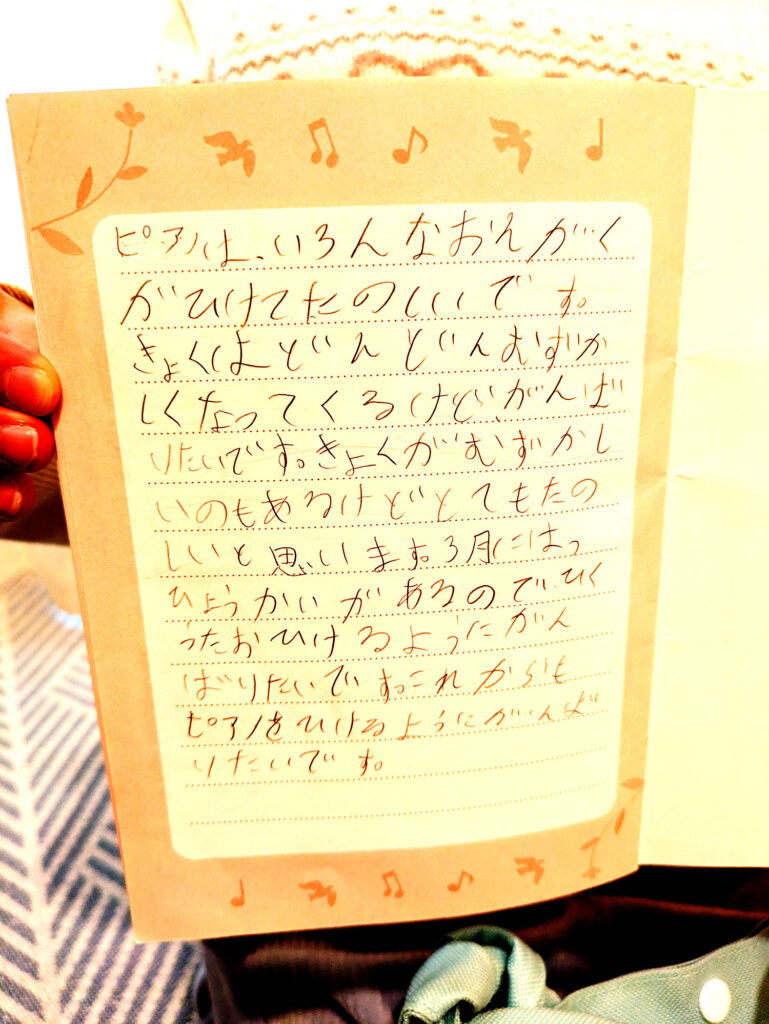 ピアノは、いろんなおんがく
がひけてたのしいです。
きょくはどんどんむずか
しくなってくるけど、がんば
りたいです。きょくがむずかし
いのもあるけどとてもたの
しいと思います。3月にはっ
ひょうかいがあるのでひく
うたおひけるようにがん
ばりたいです。これからも
ピアノをひけるようにがんば
りたいです。